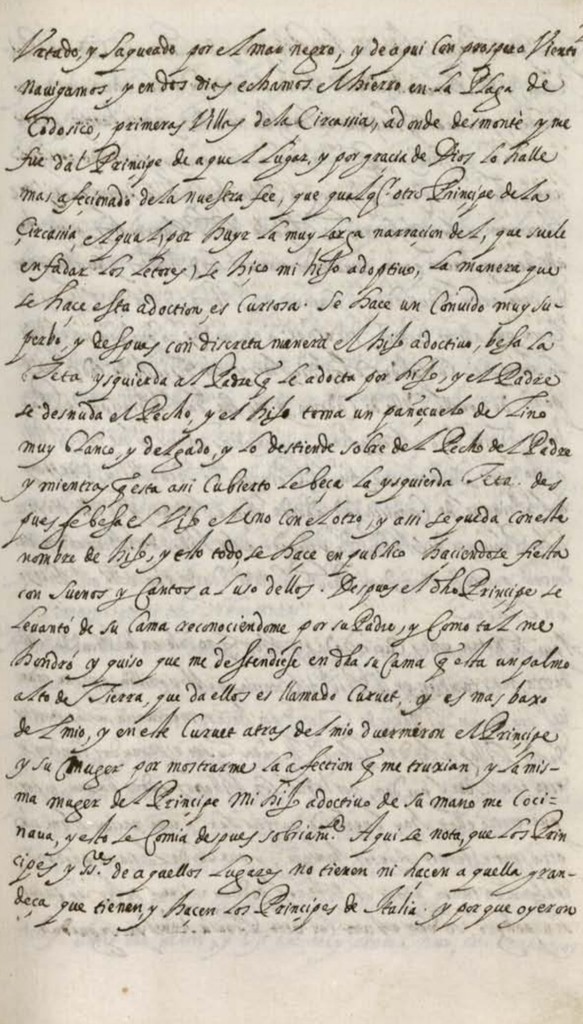 Vrtado, y saqueado por el mar negro, y de aqui con prospero Viento
navigamos, y en dos dies echamos el hierro en la Plaga de
Codosicò, primeras Villas de la Circassia, adonde desmontè y me
fue dal Principe de aquel lugar, y por gracia de Dios lo hallè
mas afecionado de la nuestra fee, que qualq.r otro Principe de la
Circasia, el qual, por huyr la muy larga narracion del, que suele
enfadar los letores, se hiço mi hijo adoptivo, la manera que
se haçe esta adoction, es curiosa. Se hace un Convido muy su-
perbo, y despues con discreta manera el hijo adoctivo, besa la
Teta ysquierda al Padre q̃ le adocta por hijo, y el Padre
se desnuda el Pecho, y el hijo toma un pañeçuelo de Lino
muy blanco, y delgado, y lo destiende sobre del Pecho del Padre
y mientras q̃ esta assi cubierto le beça la ysquierda Teta. des
pues se besa el el uno con el otro, y assi se queda con este
nombre de hijo, y esto todo, se haçe en publico haciendose fiesta
con suenos y Cantos a l uso dellos. Despues el dho Principe se
levantó de su Cama reconociendome por su Padre, y Como tal me
hondró y quiso que me destendiese en dha su Cama q̃ esta un palmo
alto de Tierra, que da ellos es llamado Curuet, y es mas baxo
del mio, y en este Curuet atras del mio duermiron el Principe
y su muger por mostrarme la afection q̃ me truxian, y la mis-
ma muger del Principe mi hijo adoctivo de sa mano me Coci-
nava, y esto se Comia despues sobriam.te Aqui se nota, que los Prin
cipes y de aquellos lugares no tienen ni hacen aquella gran-
deça que tienen, y haçen los Principes de Italia. y porque oyeron